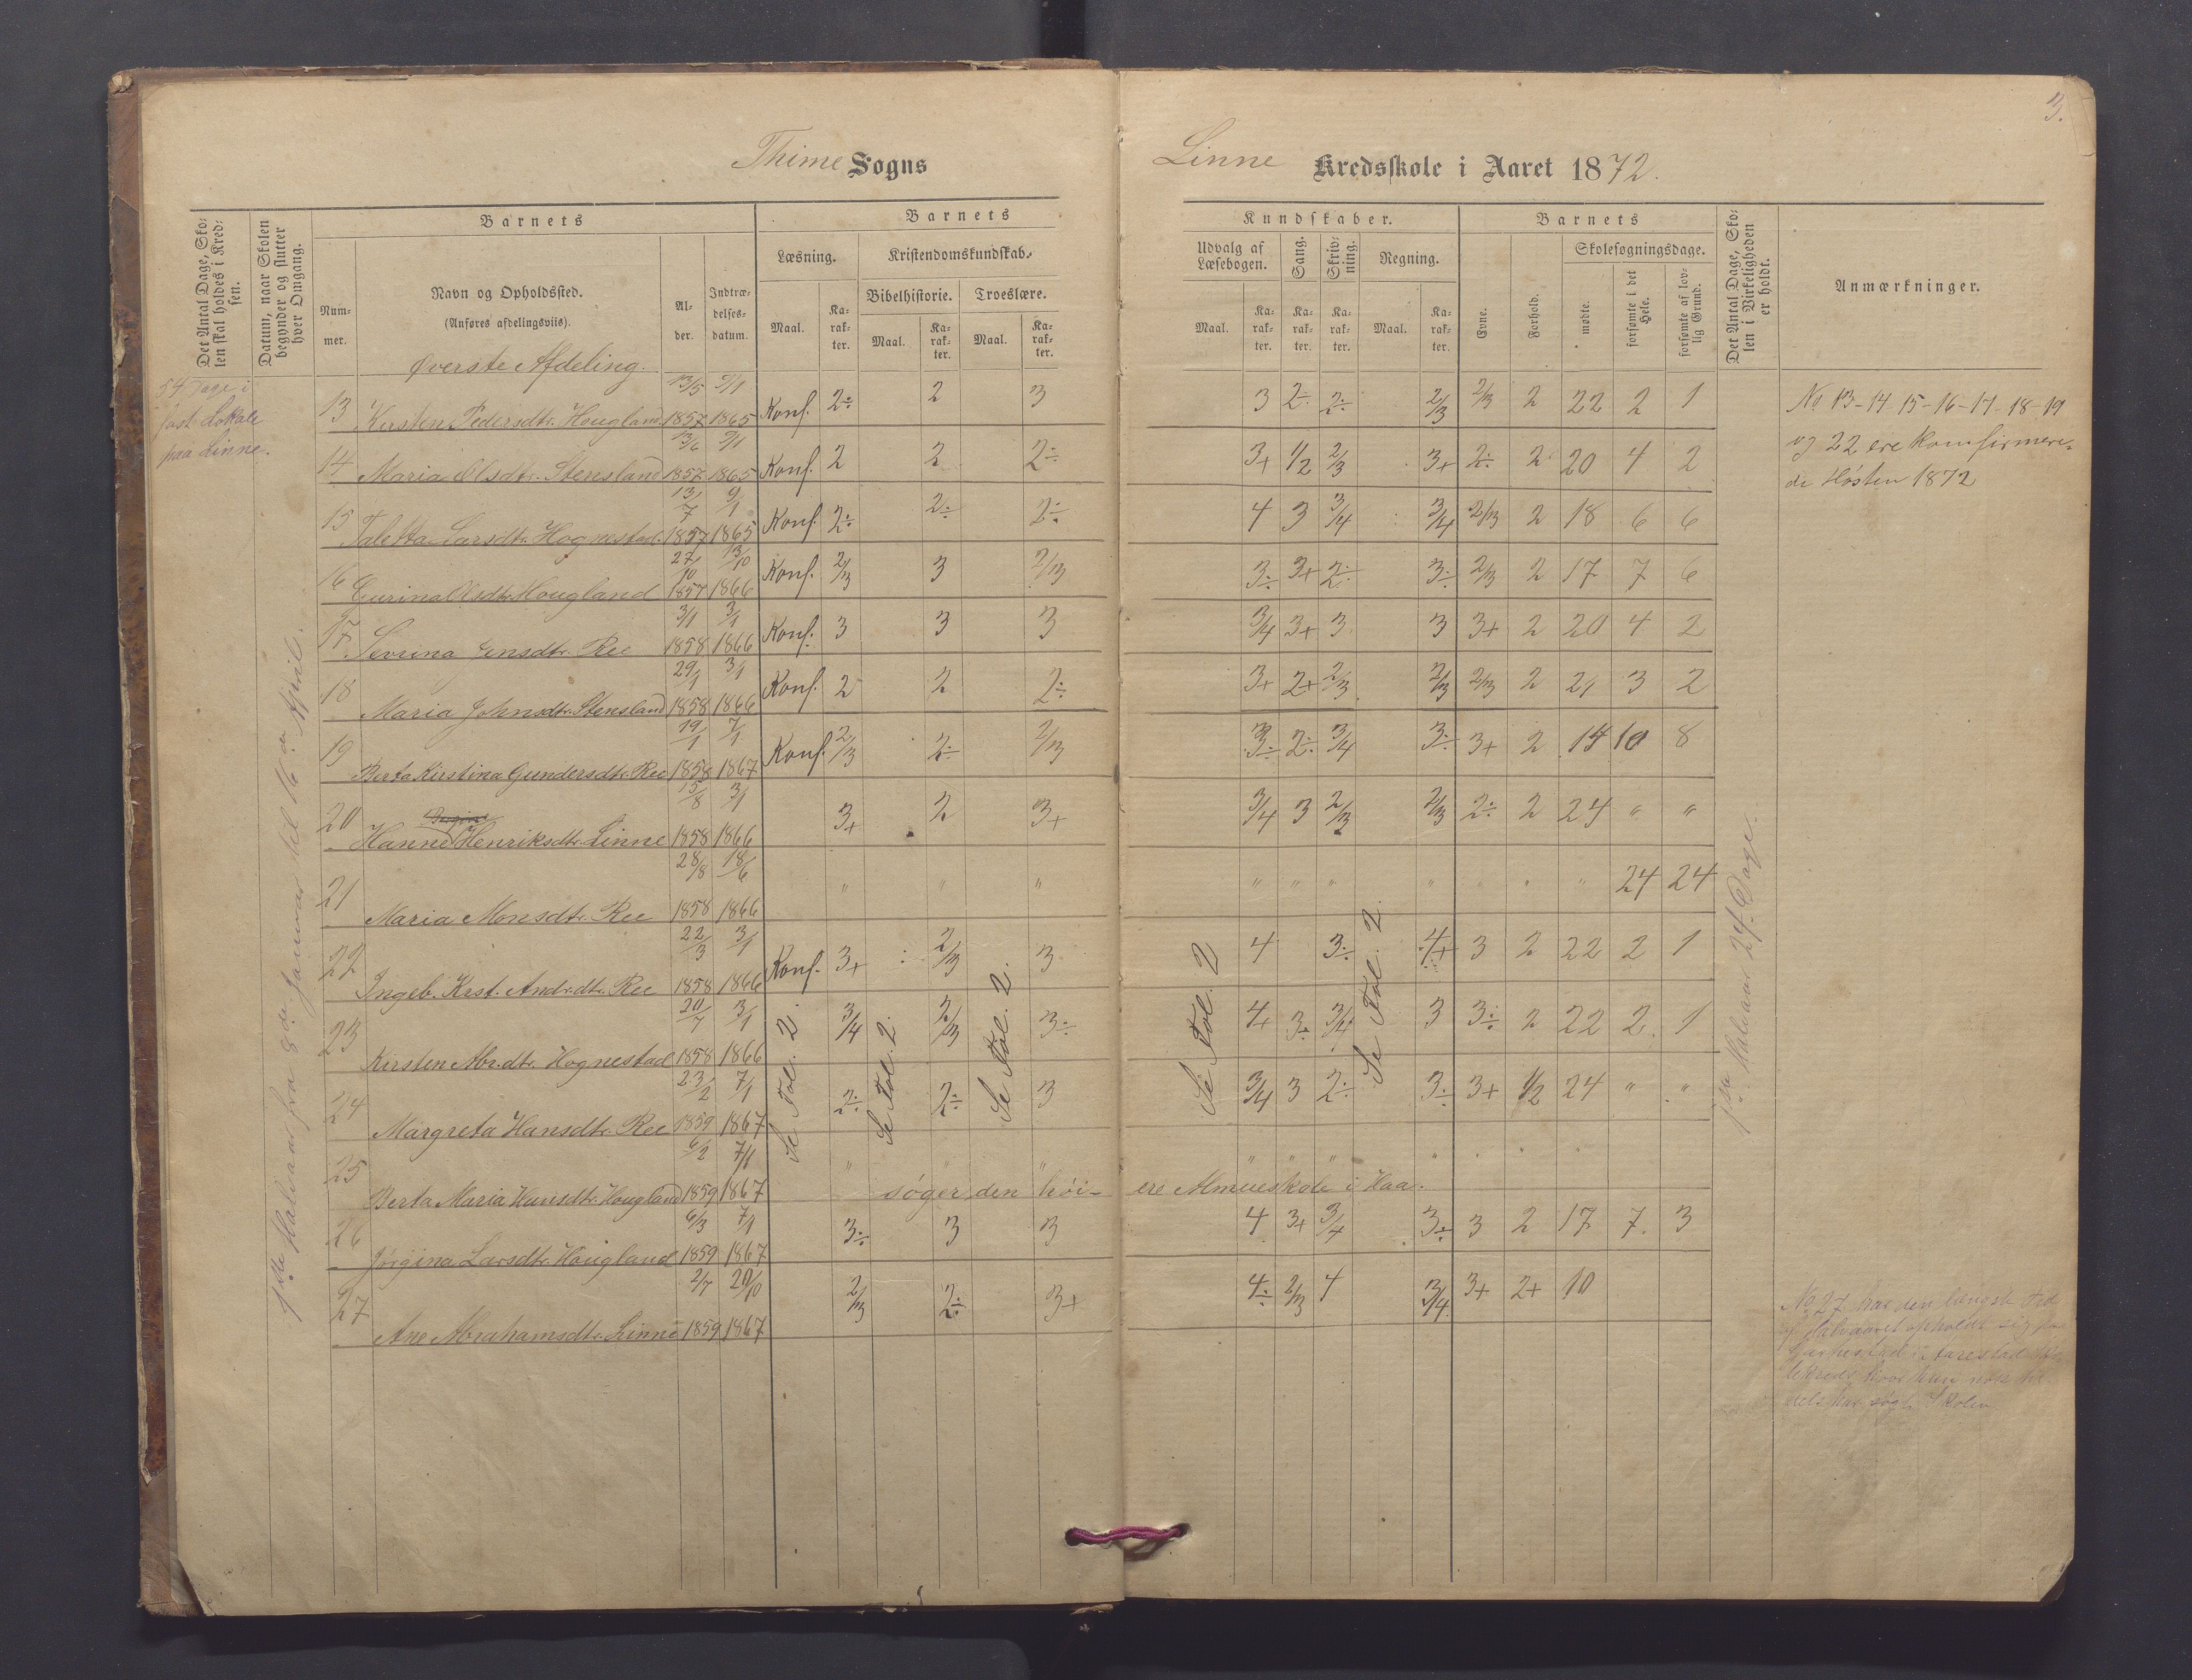 3.
Thime Sogns
Linne Kredsskole i Aaret 1872.
Det Antal Dage, Sko-
len skal holdes i Kred-
sen.
Datum, naar Skolen
begynder og slutter
hver Omgang.
Barnets
Num-
mer.
Navn og Opholdssted.
(Anføres afdelingsviis).
Al-
der.
Indtræ-
delses-
datum.
Barnets
Læsning.
Maal.
Ka-
rak-
ter.
Kristendomskundskab.
Bibelhistorie.
Maal.
Ka-
rak-
ter.
Troeslære.
Maal.
Ka-
rak-
ter.
Kundskaber.
Udvalg af
Læsebogen.
Maal.
Ka-
rak-
ter.
Sang.
Ka-
rak-
ter.
Skriv-
ning.
Ka-
rak-
ter.
Regning.
Maal.
Ka-
rak-
ter.
Barnets
Evne.
Forhold.
Skolesøgningsdage.
mødte.
forsømte i det
Hele.
forsømte af lov-
lig Grund.
Det Antal Dage, Sko-
len i Virkeligheden
er holdt.
Anmærkninger.
Øverste Afdeling.
54 Dage i
fast Lokale
paa Linne.
1ste Halvaar fra 8de Januar til 16de April.
13 Kirsten Pedersdtr. Hougland 13/5 1857 9/1 1865 Konf. 2÷ 2 3 3 2÷ 2÷ 2/3 2/3 2 22 2 1
14 Maria Olsdtr. Stensland 13/6 1857 9/1 1865 Konf. 2 2 2÷ 3+ 1/2 2/3 3+ 2÷ 2 20 4 2
15 Taletta Larsdtr. Hognestad. 13/7 1857 9/1 1865 Konf. 2÷ 2÷ 2÷ 4 3 3/4 3/4 2/3 2 18 6 6
16 Gurina Olsdtr. Hougland 27/10 1857 13/10 1866 Konf. 2/3 3 2/3 3÷ 3+ 2÷ 3÷ 2/3 2 17 7 6
17 Sevrina Jensdtr. Ree 3/1 1858 3/1 1866 Konf. 3 3 3 3/4 3+ 3 3 3+ 2 20 4 2
18 Maria Johnsdtr. Stensland 29/1 1858 3/1 1866 Konf. 2 2 2÷ 3+ 2+ 2/3 2/3 2/3 2 21 3 2
19 Berta Kirstina Gundersdtr. Ree 19/1 1858 7/1 1867 Konf. 2/3 2÷ 2/3 3÷ 2÷ 3/4 3÷ 3+ 2 14 10 8
20 Hanne Henriksdtr. Linne 15/8 1858 3/1 1866 3+ 2 3+ 3/4 3 2/3 2/3 2÷ 2 24 " "
21 Maria Monsdtr. Ree 28/8 1858 18/6 1866 " " " " " " " " " " 24 24
22 Ingeb. Kirst. Andr.dtr. Ree 22/3 1858 3/1 1866 Konf. 3+ 2/3 3 4 3÷ 4+ 3 2 22 2 1
23 Kirsten Abr.dtr. Hognestad 20/7 1858 3/1 1866 3/4 2/3 3÷ 4+ 3÷ 3/4 3 3÷ 2 22 2 1
24 Margreta Hansdtr. Ree 23/2 1859 7/1 1867 2÷ 2÷ 3 3/4 3 2÷ 3÷ 3+ 1/2 24 " "
25 Berta Maria Hansdtr. Hougland 6/2 1859 7/1 1867 søger den høi- ere Almueskole i Haa.
26 Jørgina Larsdtr. Hougland 6/3 1859 7/1 1867 3÷ 3 3 4 3+ 3/4 3÷ 3 2 17 7 3
27 Ane Abrahamsdtr. Linne 2/7 1859 20/10 1867 2/3 2÷ 3+ 4÷ 2/3 4 3/4 3+ 2+ 10
Se Fol. 2.
Se Fol. 2.
Se Fol. 2.
Se Fol. 2
Se Fol. 2.
1ste Halvaar 24 Dage.
No 13-14 15-16-17-18-19
og 22 ere konfirmere-
de Høsten 1872
No 27 har den længste Tid
af Halvaaret opholdt sig paa
hvor hun
har søgt Skolen